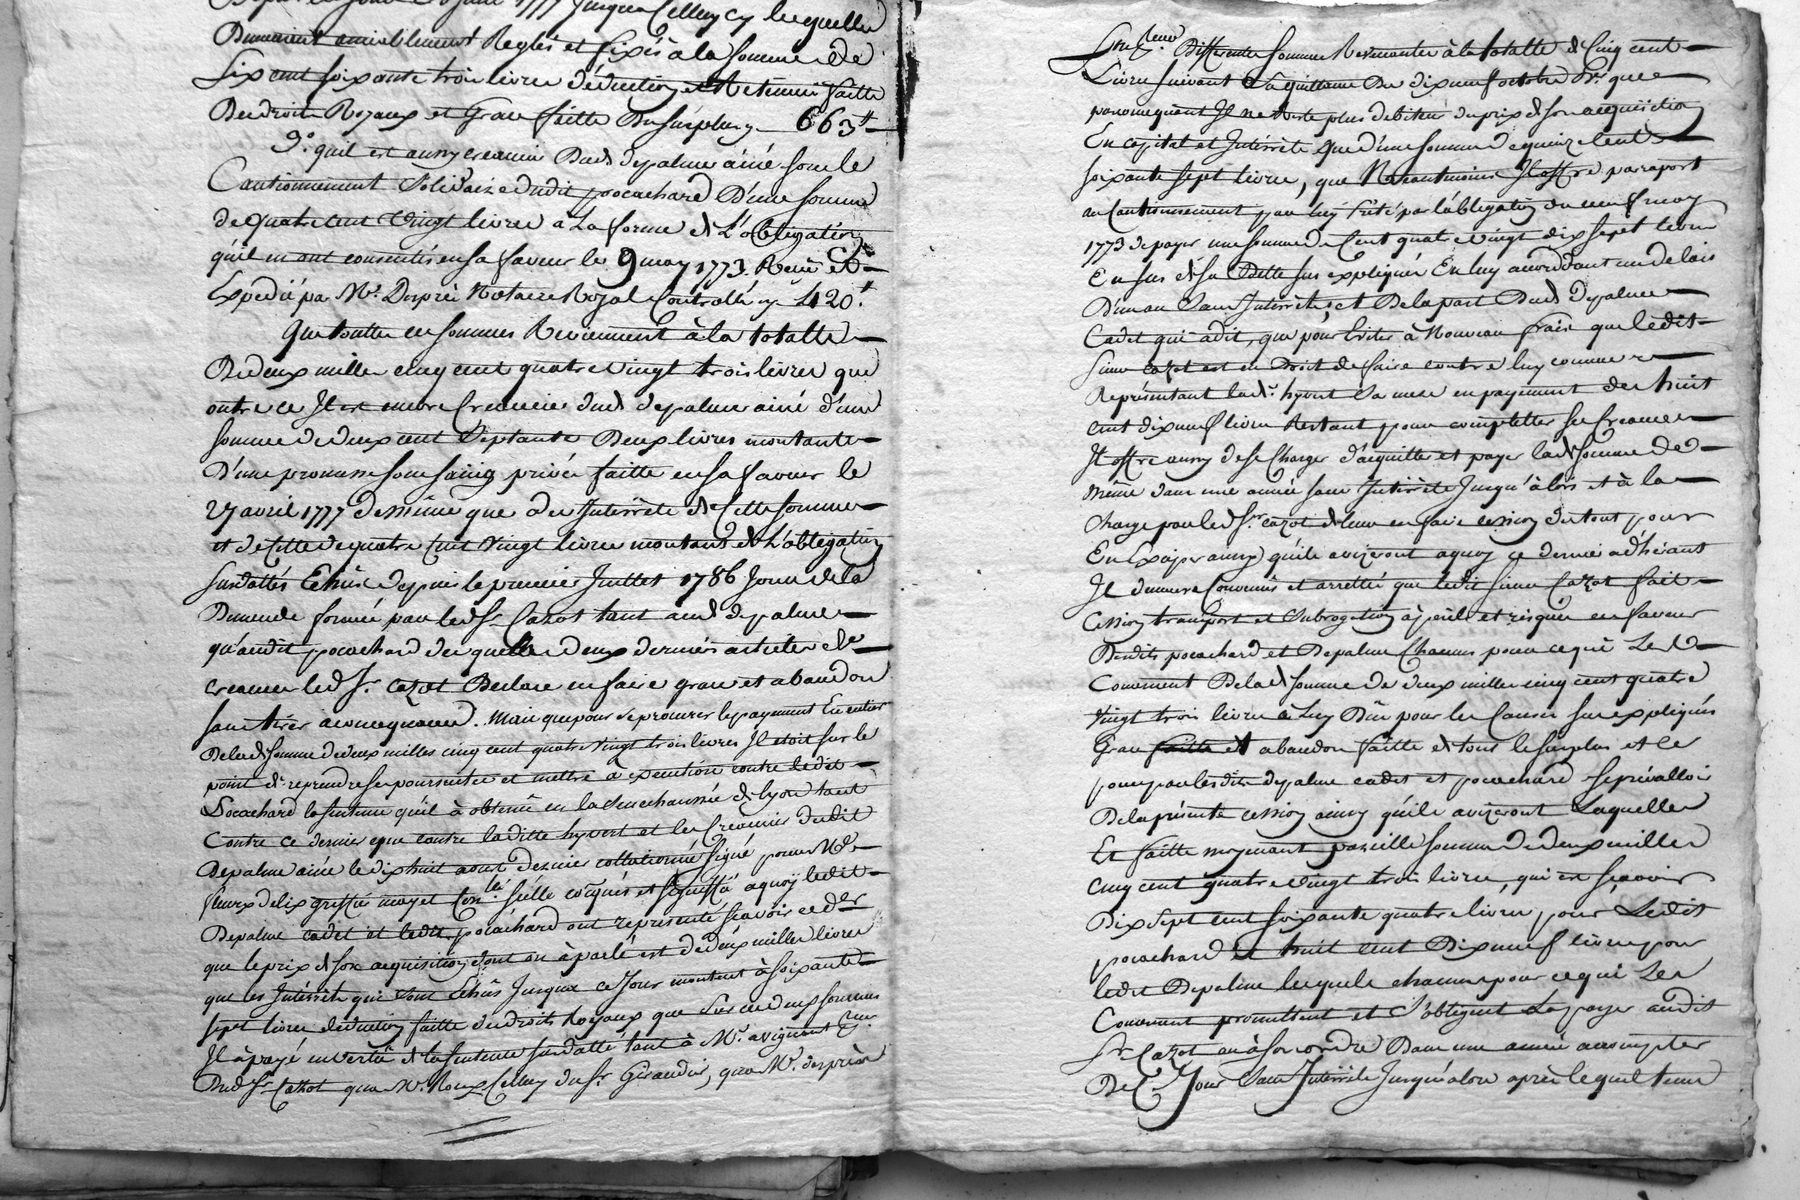 depuis le jour 1777 Jusqu'a Celluy cy lesquelles
Demeurent amiablement Reglés et fixés à la somme de
Six cent soixante trois livres déduction et Retenue faitte
Des droits Royaux et Grace faitte du surplus cy 663ᵗᵗ
3° quil est aussy creancier Dud. depalme ainé sous le
Cautionnement Solidaire dudit pocachard D'une somme
de quatre cent vingt livres a La forme de L'obligation
quil en ont consentis en sa faveur le 9 may 1773. Reçu et
Expedié par Mᵉ. Desprès Notaire Royal Controllé cy 420ᵗᵗ
Que toutes ces sommes Reviennent à la totalle
De deux mille cinq cent quatre vingt trois livres que
outre ce Il est encore Creancier dud. depalme ainé d'une
somme de deux cent septante Deux livres montant
D'une promesse sous saing privée faitte en sa faveur le
27 avril 1777 de même que des Interrêts de Cette somme
et de Celle de quatre Cent Vingt livres montant de L'obligation
Susdattés Echus depuis le premier Juillet 1786 Jour de la
Demande formée par led. Sʳ. Cazot tant aud. depalme
qu'audit pocachard desquelles deux derniers articles de
creances led. Sʳ. cazot Declare en faire grace et abandon
sans tirer a consequence. Mais que pour se procurer le payement En entier
De lad. somme de deux milles cinq cent quatre vingt trois livres Il étoit sur le
point de reprendre ses poursuites et mettre à execution contre ledit
Pocachard la sentence qu'il à obtenue en la senechaussée de Lyon tant
Contre ce dernier que contre laditte hyvert et les Creanciers dudit
Depalme ainé le dix huit aout dernier collationné signé pour Mᵉ
fleurdelix greffier moyet Conˡᵉʳ. séelle et signiffié aquoy ledit
Depalme cadet et ledit pocachard ont representé sçavoir ce dᵉʳ
que le prix de son acquisition dont on à parlé est de deux milles livres
que les Interrêts qui sont Echus Jusqua ce Jour montent à soixante
sept livres déduction faitte des droits Royaux que sur ces deux sommes
Il à payé en vertu de la sentence susdatté tant à Mᵉ. avignant
Dud. Sʳ. Cazot qua Mᵉ. Roux Celluy du Sʳ. Giraudier, qua Mᵉ. desprès
Differentes sommes Revenantes à la totalle de Cinq cent
Livres suivant La quittance Du dix neuf octobre Dʳ. que
par consequent Il ne Reste plus debiteur du prix de son acquisition
En capital et Interrêts que d'une somme de quinze Cent
soixante sept livres, que Neantmoins Il offre par raport
au Cautionnement par luy Prété par l'obligation du neuf may
1773 de payer une somme de Cent quatre vingt dix sept livres
En sus de sa Dette sus expliquée En luy accordant un delais
D'un an Sans Interrêts; et De la part Dud. Depalme
Cadet qui à dit, que pour Eviter à Nouveau frais que ledit
Sieur cazot est en Droit de faire contre luy comme
Représentant lad. hyvert Sa mere en payement des huit
cent dix neuf livres Restant pour completter ses creances
Il offre aussy de se Charger d'aquitter et payer lad. somme de
même dans une année sans Interrêts Jusqu'à lors et à la
charge par led. Sʳ. cazot de leur en faire cession du tout pour
En Exciper ainsy qu'ils aviseront aquoy ce dernier adhérant
Il demeure Convenus et arretté que ledit Sieur Cazot fait
Cession transport et subrogation à périls et risques en faveur
Desdits pocachard et Depalme Chacuns pour ce qui Les
Concernent De la d. somme de deux mille cinq cent quatre
Vingt trois livres à Luy Dûe pour les Causes sus expliqués
Grace faitte et abandon faitte de tous le surplus et ce
pour par lesdits depalme cadet et pocachard se prévalloir
De la présente cession ainsy qu'ils aviseront Laquelle
Est faitte moyenant pareille somme de deux milles
Cinq cent quatre vingt trois livres, qui est sçavoir
Dix sept cent soixante quatre livres pour Ledit
pocachard et huit cent Dix neuf livres pour
ledit Depalme lesquels chacuns pour ce qui Les
Concernent promettent et S'obligent La payer audit
Sʳ. Cazot ou à son ordre Dans une année a compter
De Ce Jour Sans Interrêts Jusqu'alors après lequel tems